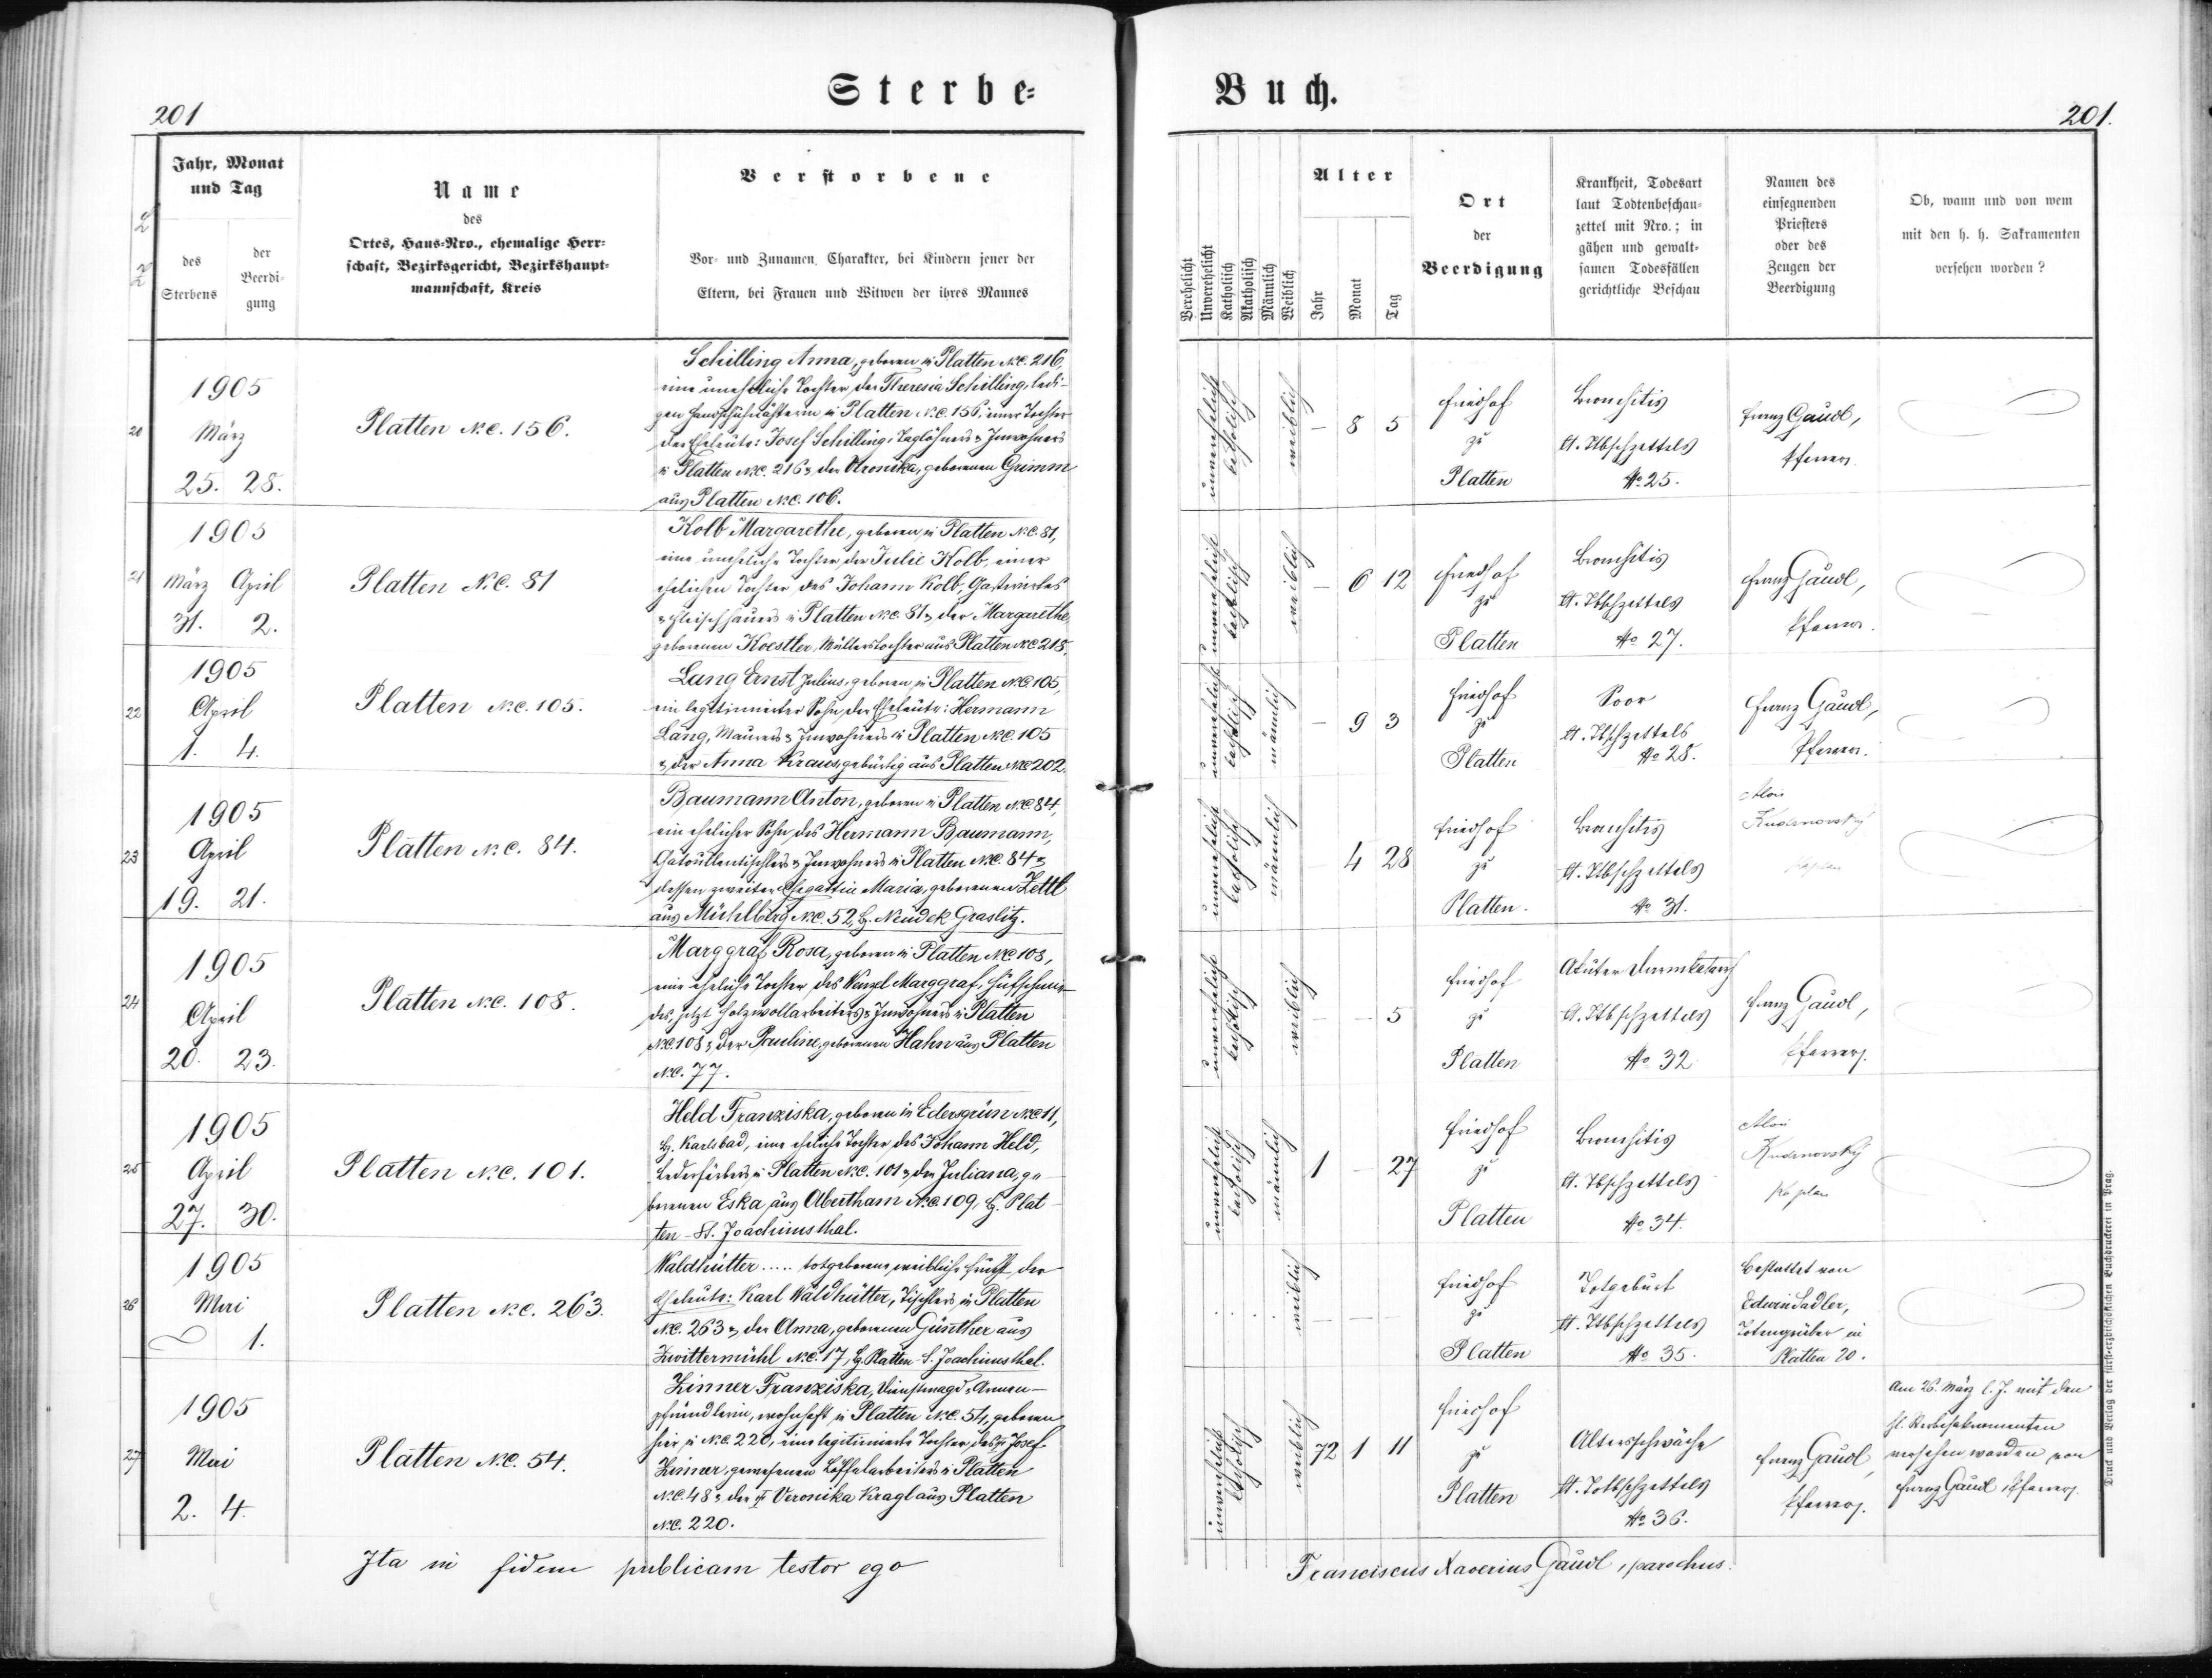 Sterbe=
Buch.
201
201.
Jahr, Monat
und Tag
des
Sterbens
der
Beerdi-
gung
Name
des
Ortes, Haus-Nro., ehemalige Herr-
schaft, Bezirksgericht, Bezirkshaupt-
mannschaft, Kreis
Verstorbene
Vor- und Zunamen, Charakter, bei Kindern jener der
Eltern, bei Frauen und Witwen der ihres Mannes
Verehelicht
Unverehelicht
Katholisch
Akatholisch
Männlich
Weiblich
Alter
Jahr
Monat
Tag
Ort
der
Beerdigung
Krankheit, Todesart
laut Todtenbeschau-
zettel mit Nro.; in
gähen und gewalt-
samen Todesfällen
gerichtliche Beschau
Namen des
einsegnenden
Priesters
oder des
Zeugen der
Beerdigung
Ob, wann und von wem
mit den h. h. Sakramenten
versehen worden?
20
1905
März
25. 28.
Platten N.C. 156.
Schilling Anna, geboren in Platten N.C. 216,
eine uneheliche Tochter der Theresia Schilling, ledi-
gen Handschuhnähterin in Platten N.C. 156, einer Tochter
der Eheleute: Josef Schilling, Taglöhners & Inwohners
in Platten N.C. 216 & der Veronika, geborenen Grimm
aus Platten N.C. 106.
unverehelicht
katholisch
weiblich
- 8 5
Friedhof
zu
Platten
Bronchitis
lt. Tbschzettels
No 25.
Franz Gaudl,
Pfarrer.
21
1905
März April
31. 2.
Platten N.C. 81
Kolb Margarethe, geboren in Platten N.C. 81,
eine uneheliche Tochter der Julie Kolb, einer
ehelichen Tochter des Johann Kolb, Gastwirtes
& Fleischhauers in Platten N.C. 81 & der Margarethe,
geborenen Koestler, Müllerstochter aus Platten N.C. 218.
unverehelicht
katholisch
weiblich
- 6 12
Friedhof
zu
Platten
Bronchitis
lt. Tbschzettels
No 27.
Franz Gaudl,
Pfarrer.
22
1905
April
1. 4.
Platten N.C. 105.
Lang Ernst Julius, geboren in Platten N.C. 105,
ein legitimierter Sohn der Eheleute: Hermann
Lang, Maurers & Inwohners in Platten N.C. 105
& der Anna Kraus, gebürtig aus Platten N.C. 202.
unverehelicht
katholisch
männlich
- 9 3
Friedhof
zu
Platten
Soor
lt. Tbschzettels
No 28.
Franz Gaudl,
Pfarrer.
23
1905
April
19. 21.
Platten N.C. 84.
Baumann Anton, geboren in Platten N.C. 84,
ein ehelicher Sohn des Hermann Baumann,
Inwohners in Platten N.C. 84 &
dessen zweiter Ehegattin Maria, geborenen Zettl
aus Mühlberg N.C. 52, B. Neudek Graslitz.
unverehelicht
katholisch
männlich
4 28
Friedhof
zu
Platten.
Bronchitis
lt. Tbschzettels
No 31.
Alois
Kudrnovský
Kaplan
24
1905
April
20. 23.
Platten N.C. 108.
Marggraf Rosa, geboren in Platten N.C. 108,
eine eheliche Tochter des Wenzel Marggraf, Hufschmie-
des, jetzt Holzwollarbeiters & Inwohners in Platten
N.C. 108 & der Pauline, geborenen Hahn aus Platten
N.C. 77.
unverehelicht
katholisch
weiblich
- - 5
Friedhof
zu
Platten
Akuter Darmkatarrh
lt. Tbschzettels
No 32
Franz Gaudl,
Pfarrer.
25
1905
April
27. 30.
Platten N.C. 101.
Held Franziska, geboren in Edersgrün N.C. 11,
B. Karlsbad, eine eheliche Tochter des Johann Held,
Lederfärbers in Platten N.C. 101 & der Juliana, ge-
borenen Eska aus Abertham N.C. 109, B. Plat-
ten - St. Joachimsthal.
unverehelicht
katholisch
männlich
1 - 27
Friedhof
zu
Platten
Bronchitis
lt. Tbschzettels
No 34.
Alois
Kudrnovský
Kaplan
26
1905
Mai
1.
Platten N.C. 263.
Waldhütter ..... totgeborene weibliche Frucht der
Eheleute: Karl Waldhütter, Tischlers in Platten
N.C. 263 & der Anna, geborenen Günther aus
Zwittermühl N.C. 17, B. Platten - S. Joachimsthal.
weiblich
- - -
Friedhof
zu
Platten
Totgeburt
lt. Tbschzettels
No 35.
Bestattet von
Edwin Sadler,
Totengräber in
Platten 20.
27
1905
Mai
2. 4.
Platten N.C. 54.
Zinner Franziska, Dienstmagd & Armen-
pfründlerin, wohnhaft in Platten N.C. 54, geboren
hier in N.C. 220, eine legitimierte Tochter des † Josef
Zinner, gewesenen Löffelarbeiters in Platten
N.C. 48 & der † Veronika Kragl aus Platten
N.C. 220.
unverehelicht
katholisch
weiblich
72 1 11
Friedhof
zu
Platten
Altersschwäche
lt. Totbschzettels
No 36.
Franz Gaudl,
Pfarrer.
Am 26. März l. J. mit den
hl. Sterbesakramenten
versehen worden von
Franz Gaudl, Pfarrer.
Ita in fidem publicam testor ego
Franciscus Xaverius Gaudl, parochus.
Druck und Verlag der fürst-erzbischöflichen Buchdruckerei in Prag.